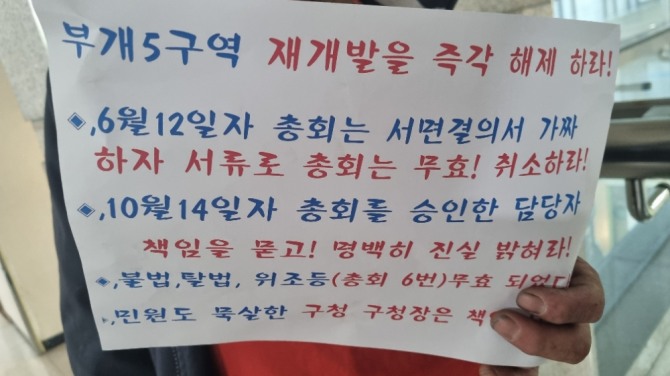 부개5구역 재개발을 즉각 해제 하라!
◈,6월12일자 총회는 서면결의서 가짜
하자 서류로 총회는 무효! 취소하라!
◈,10월14일자 총회를 승인한 담당자
책임을 묻고! 명백히 진실 밝혀라!
◈,불법,탈법, 위조등(총회 6번)무효 되었다
,민원도 묵살한 구청 구청장은 책